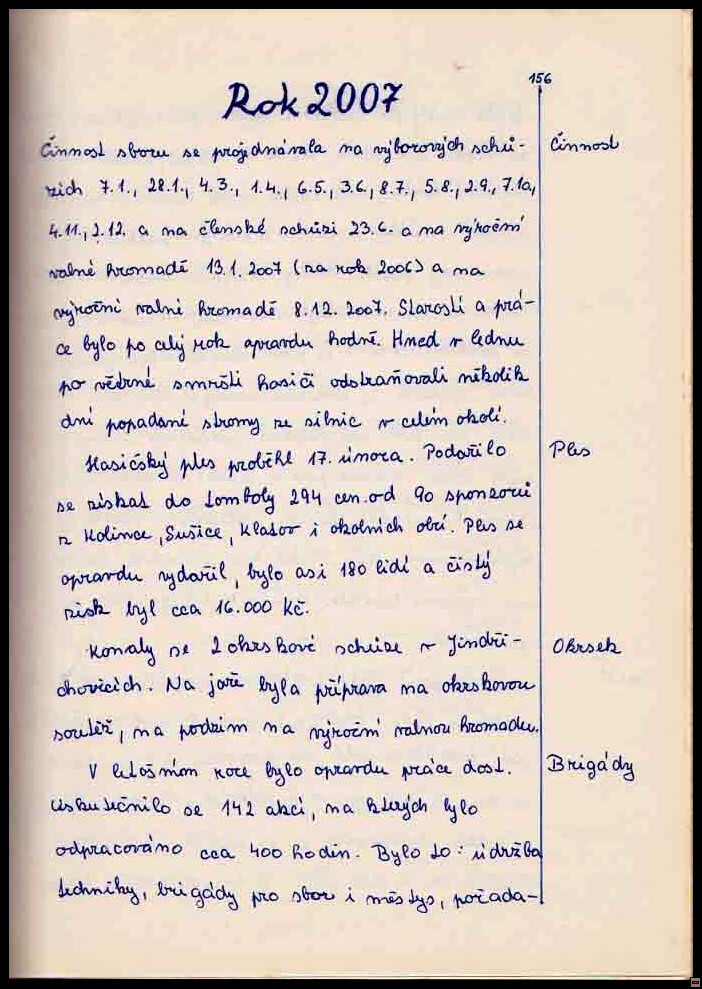 156
Rok 2007
Činnost sboru se projednávala na výborových schů- Činnost
zích 7.1., 28.1., 4.3., 1.4., 6.5., 3.6., 8.7., 5.8., 2.9., 7.10.,
4.11., 2.12. a na členské schůzi 23.6. a na výroční
valné hromadě 13.1.2007 (za rok 2006) a na
výroční valné hromadě 8.12. 2007. Starostí a prá-
ce bylo po celý rok opravdu hodně. Hned v lednu
po větrné smršti hasiči odstraňovali několik
dní popadané stromy ze silnic v celém okolí.
Hasičský ples proběhl 17. února. Podařilo Ples
se získat do tomboly 294 cen od 90 sponzorů
z Kolince, Sušice, Klatov i okolních obcí. Ples se
opravdu vydařil, bylo asi 180 lidí a čistý
zisk byl cca 16.000 Kč.
Konaly se 2 okrskové schůze v Jindři- Okrsek
chovicích. Na jaře byla příprava na okrskovou
soutěž, na podzim na výroční valnou hromadu.
V letošním roce bylo opravdu práce dost. Brigády
Uskutečnilo se 142 akcí, na kterých bylo
odpracováno cca 400 hodin. Bylo to: údržba
techniky, brigády pro sbor i městys, požada-